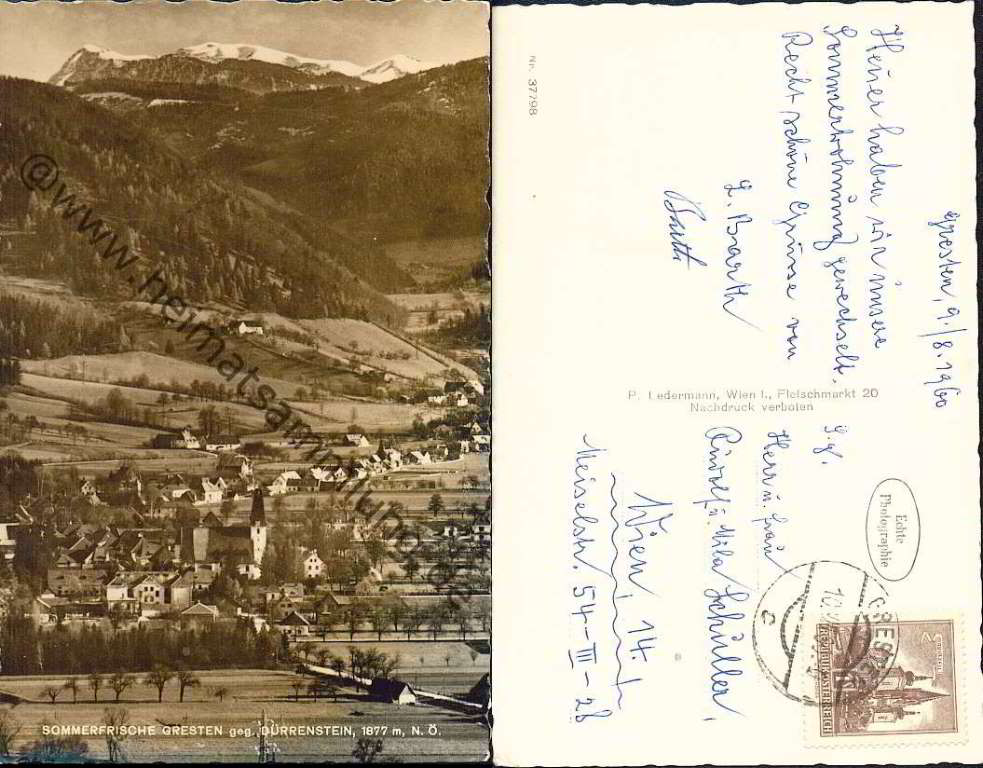 SOMMERFRISCHE GRESTEN geg. DÜRRENSTEIN, 1877 m, N. Ö.
@www.heimatsammlung.
Nr. 37798
Gresten, 9./8.1960
Heuer haben wir unsere
Sommerwohnung gewechselt.
Recht schöne Grüsse von
L. Barth
Barth
P. Ledermann, Wien I., Fleischmarkt 20
Nachdruck verboten
Echte
Photographie
S.g.
Herr u. Frau
Rudolf u. Mila Schuller,
Wien, 14.
Meiselstr. 54-III-28
GRES
10.
REPUBLIK ÖSTERREICH